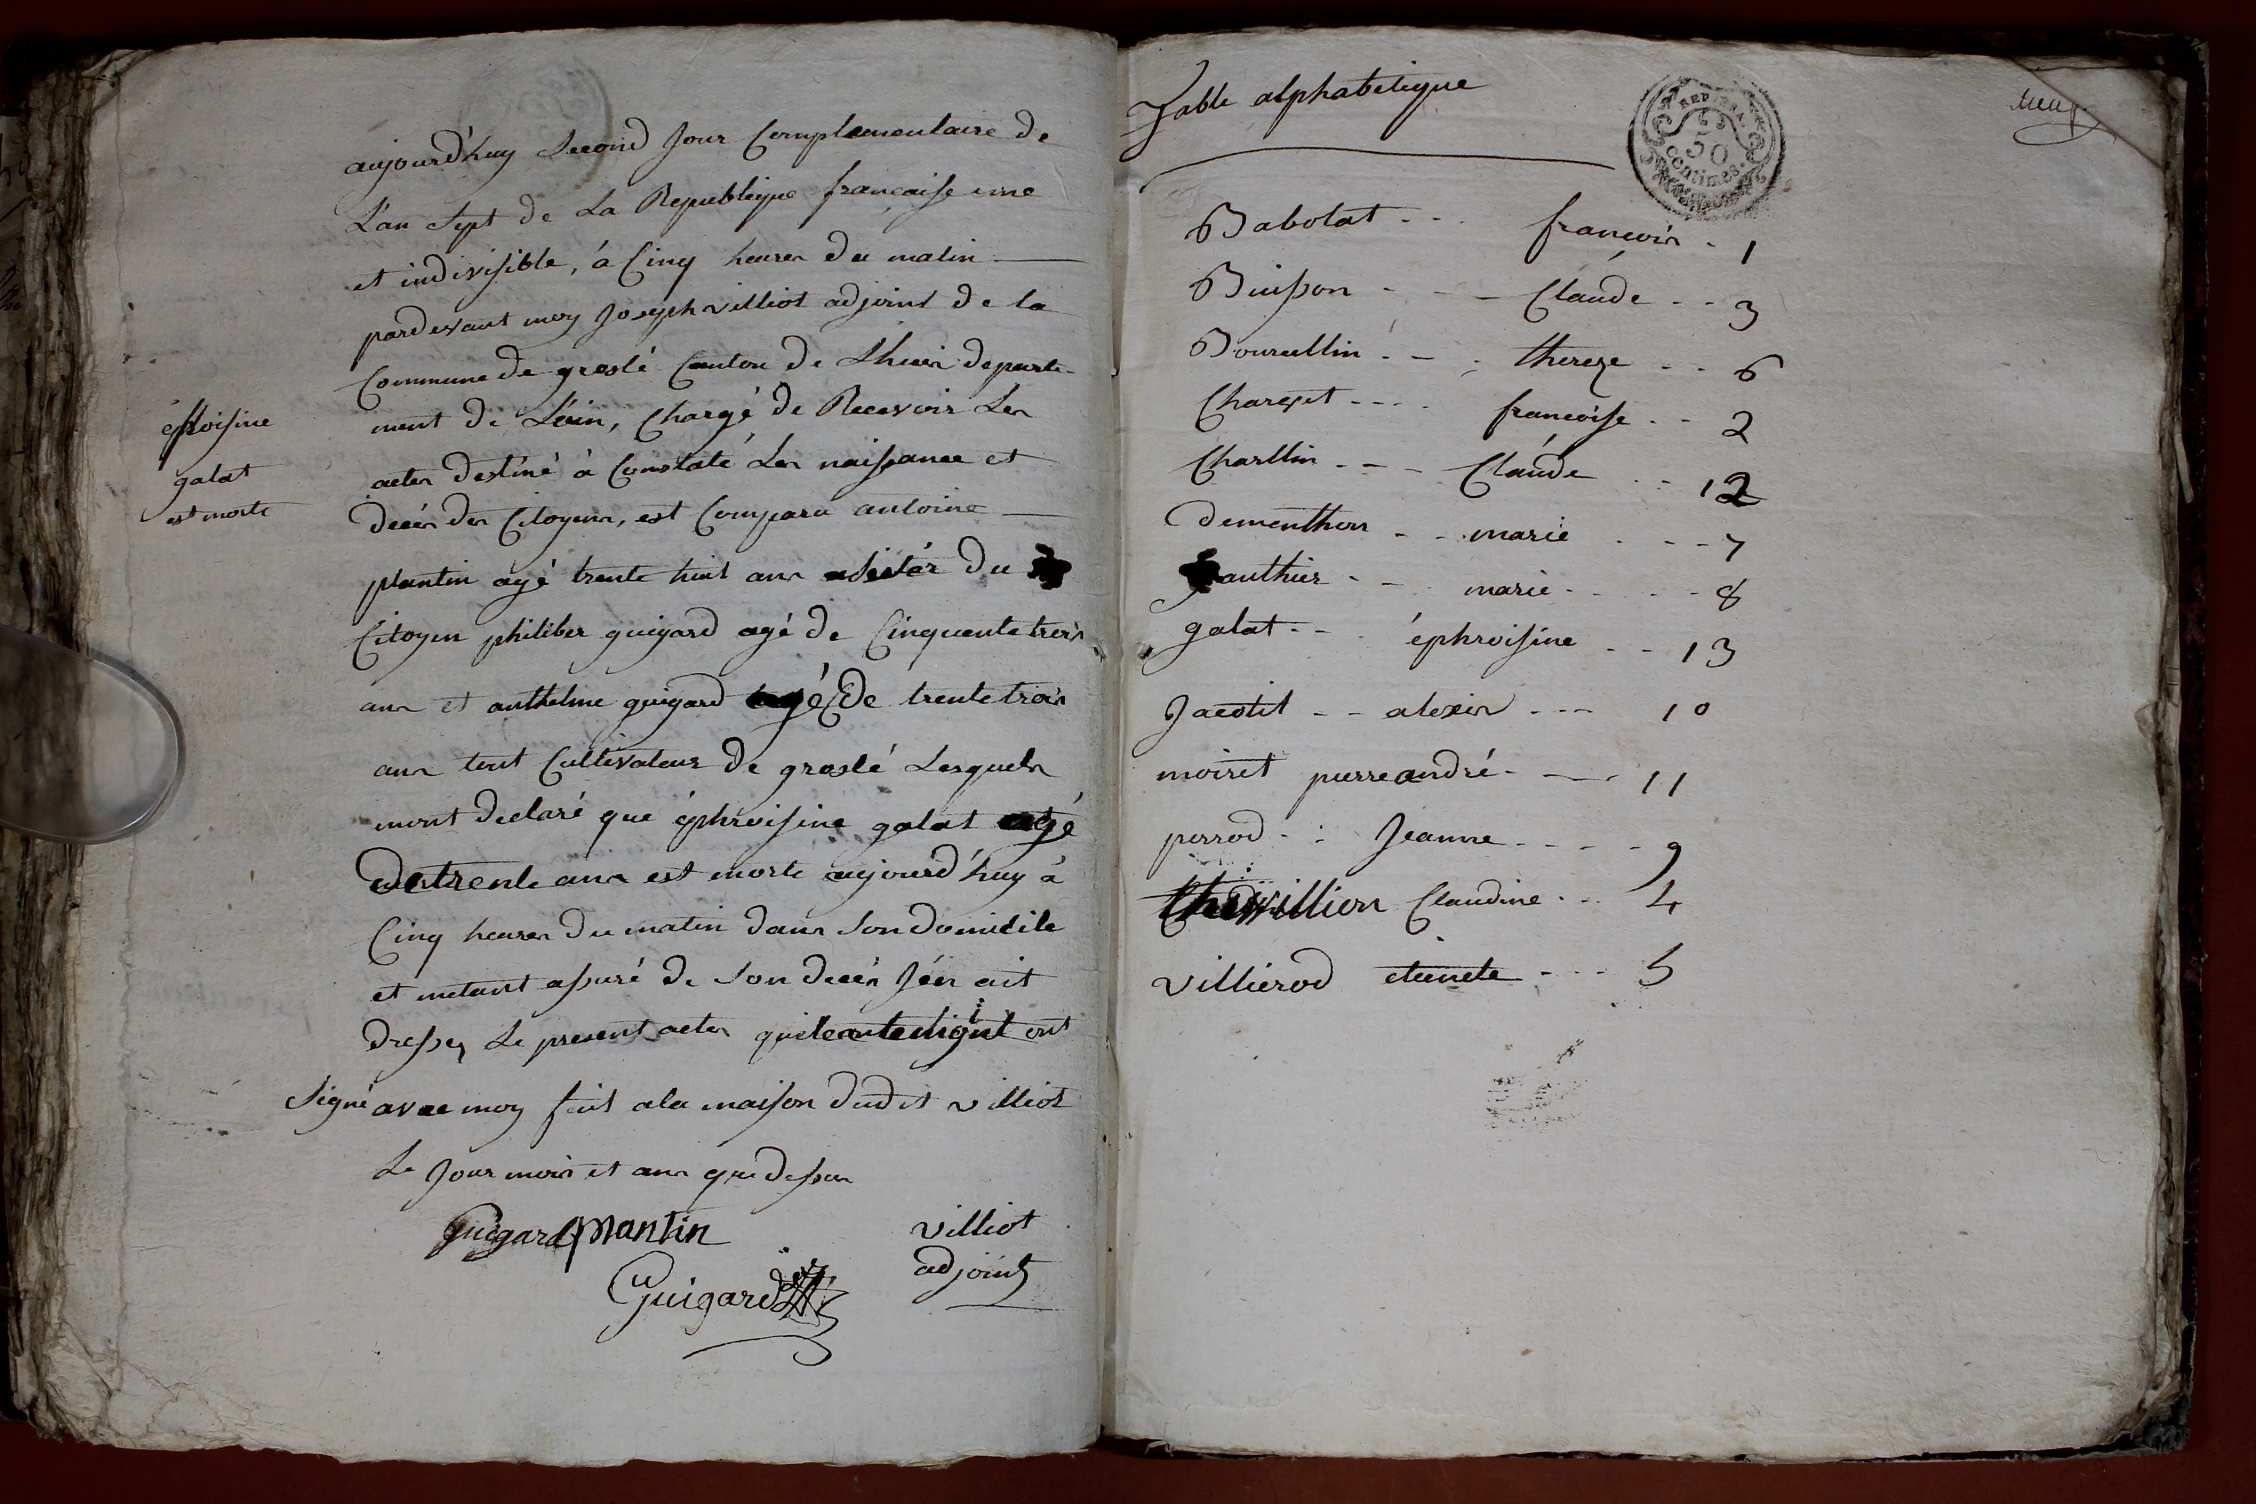 aujourd'huy second Jour Complementaire de
L'an sept de La Republique française une
et indivisible, à Cinq heures du matin
pardevant moy Joseph villiot adjoint de la
Commune de groslé Canton de Lhuis departe-
ment de L'ain, Chargé de Recevoir Les
actes destiné à Constaté Les naissance et
decés des Citoyens, est Comparu antoine
plantin agé trente huit ans assistér du
Citoyen philiber guigard agé de Cinquante trois
ans et anthelme guigard agé de trente trois
ans tout Cultivateur de groslé Lesquels
mont declaré que éphroisine galat agé
de trente ans est morte aujourd'huy à
Cinq heures du matin dans Son domicile
et metant assuré de Son decés J'en ait
dressey Le present actes ont
Signé avec moy fait a la maison dudit villiot
Le Jour mois et ans que dessus
Guigard plantin
villiot
adjoint
Guigard
éfroisine
galat
est morte
Table alphabetique
REP. FRA.
50
centimes
Babolat - - - françois - 1
Buisson - - - Claude - - 3
Bourcellin - - - thereze - - 6
Charget - - - - francoise - - 2
Charllin - - - Claude - - 12
dementhon - - marie - - - 7
gauthier - - marie - - - - 8
galat - - éphroisine - - 13
Jacotit - - alexis - - - 10
moiret pierre andré - - 11
perrod - - Jeanne - - - - 9
Claudine - - 4
villierod - - - 5